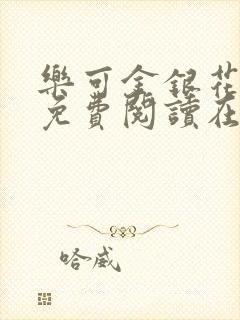 樂可金銀花
免費閱讀在
哈威